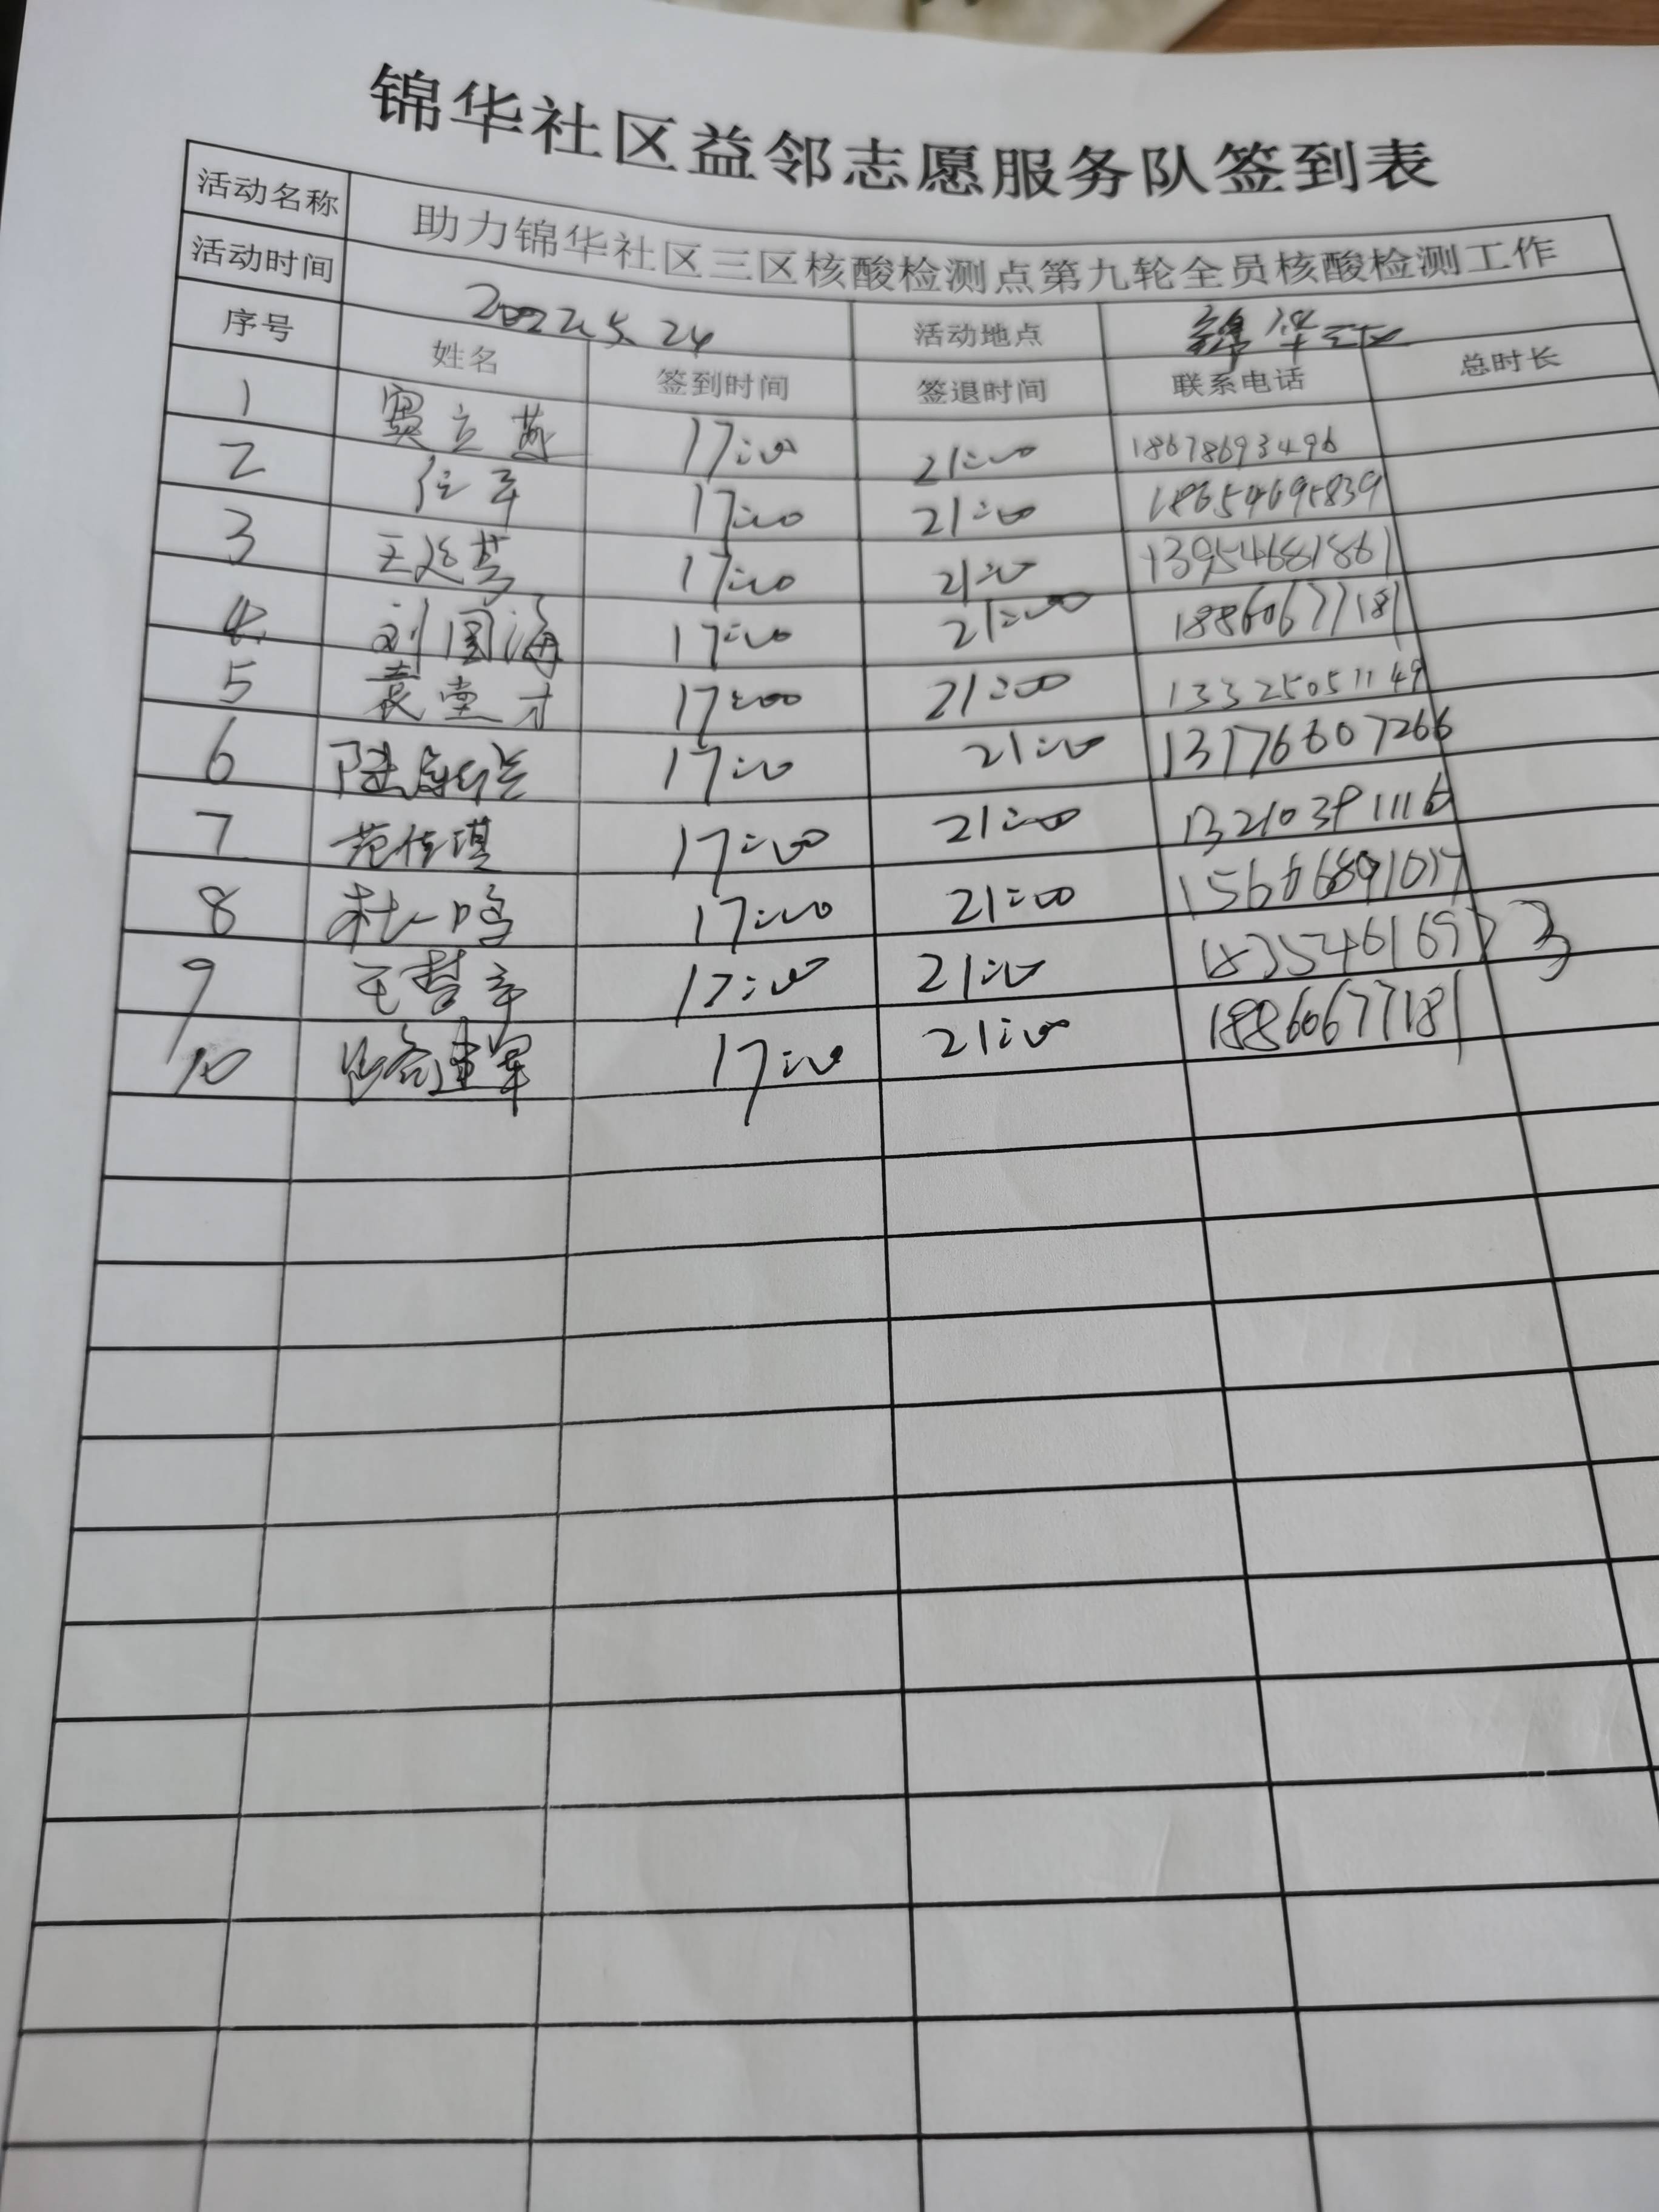 锦华社区益邻志愿服务队签到表
活动名称 助力锦华社区三区核酸检测点第九轮全员核酸检测工作
活动时间 2022.5.24 活动地点 锦华三区
序号 姓名 签到时间 签退时间 联系电话 总时长
1 窦立燕 17:00 21:00 18678693496
2 任军 17:00 21:00 18654695839
3 王延芳 17:00 21:00 13954681861
4 刘国海 17:00 21:00 18860677181
5 袁堂才 17:00 21:00 13325051149
6 17:00 21:00 13176607266
7 范佳琪 17:00 21:00 13210391116
8 杜一鸣 17:00 21:00
9 王哲宇 17:00 21:00
10 骆建军 17:00 21:00 18860677181